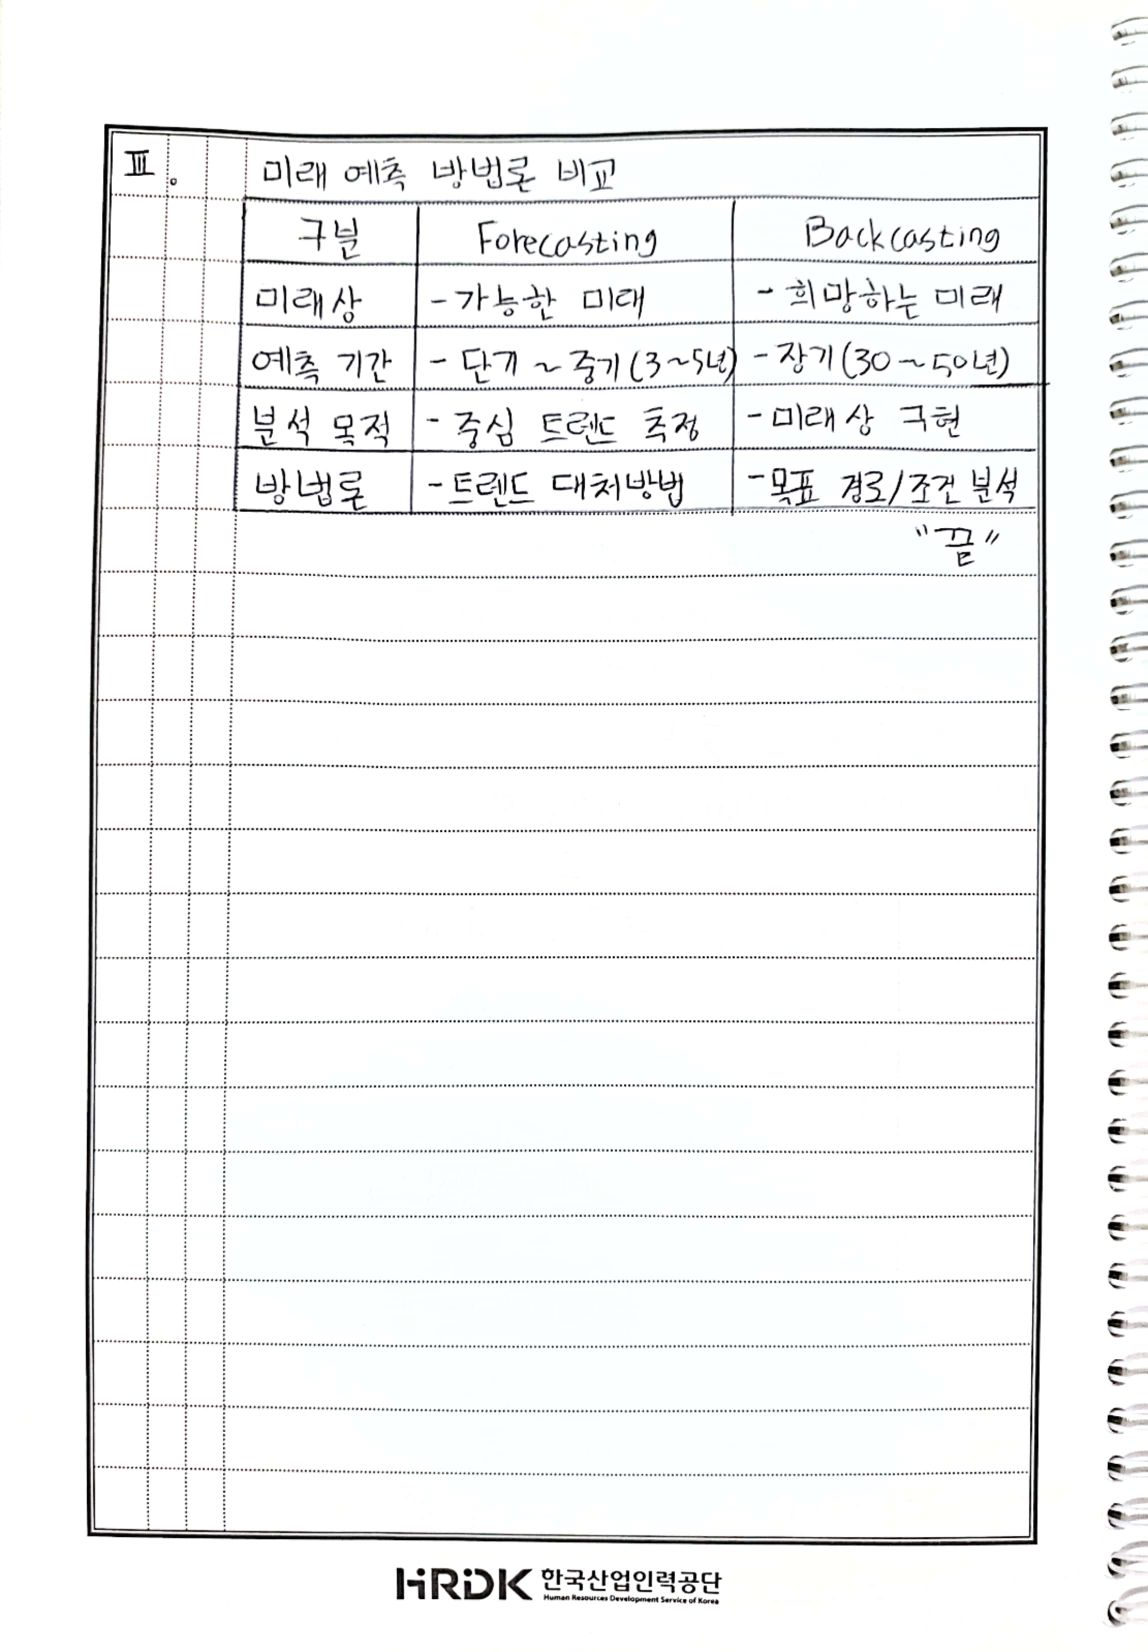 Ⅲ. 미래 예측 방법론 비교
구분 Forecasting Backcasting
미래상 - 가능한 미래 - 희망하는 미래
예측 기간 - 단기 ~ 중기(3~5년) - 장기(30~50년)
분석 목적 - 중심 트렌드 측정 - 미래상 구현
방법론 - 트렌드 대처방법 - 목표 경로/조건 분석
"끝"
HRDK 한국산업인력공단
Human Resources Development Service of Korea